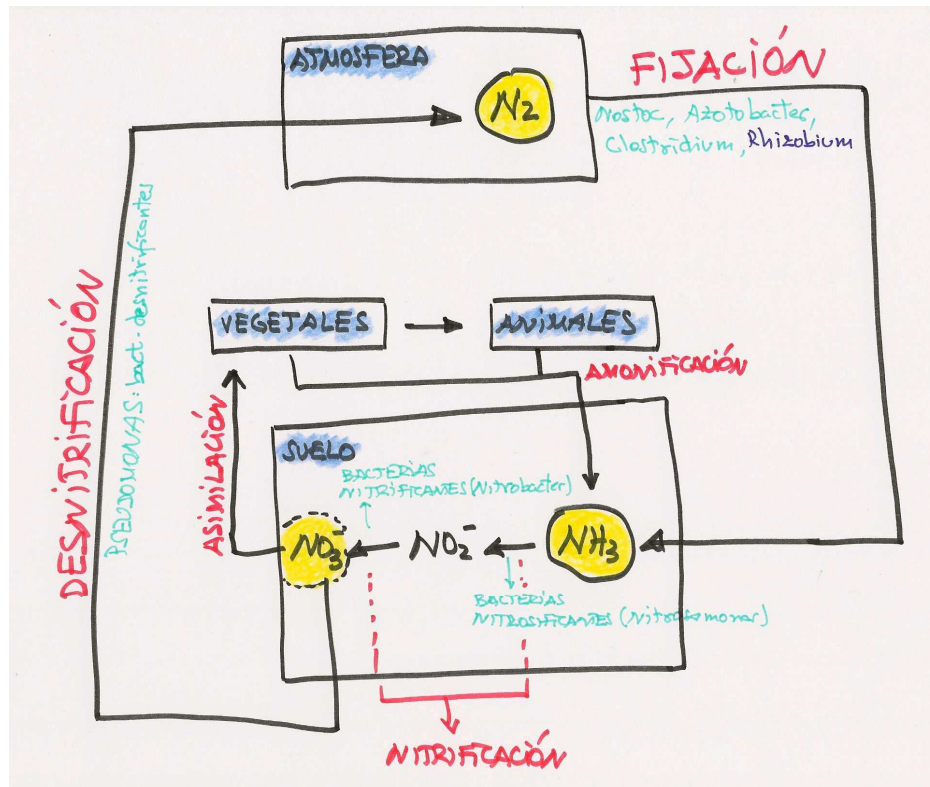 ATMOSFERA
N2
FIJACIÓN
Nostoc, Azotobacter,
Clostridium, Rhizobium
DESNITRIFICACIÓN
PSEUDOMONAS: bact. desnitrificantes
VEGETALES
ANIMALES
AMONIFICACIÓN
ASIMILACIÓN
SUELO
BACTERIAS
NITRIFICANTES (Nitrobacter)
NO3-
NO2-
NH3
BACTERIAS
NITROSIFICANTES (Nitrosomonas)
NITRIFICACIÓN